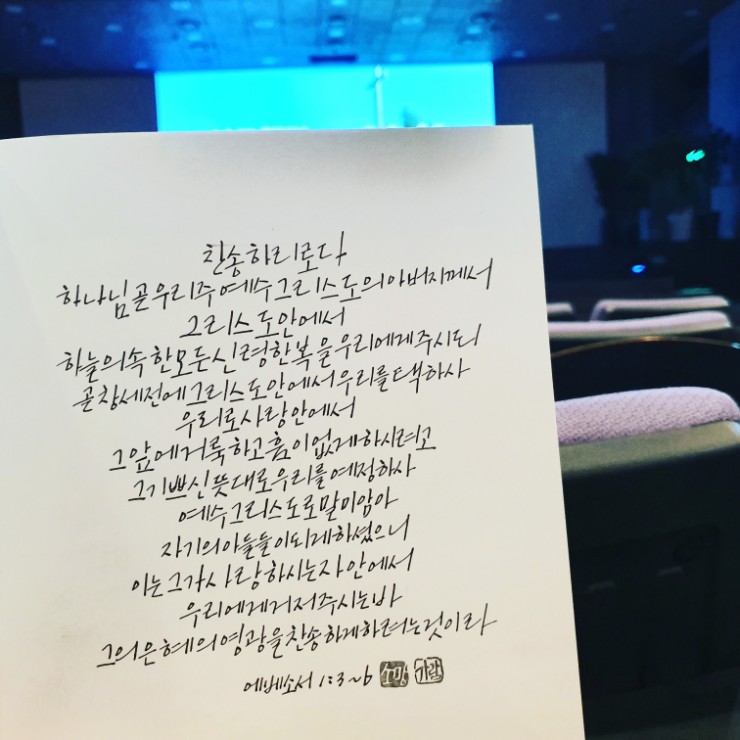 찬송하리로다
하나님 곧 우리 주 예수 그리스도의 아버지께서
그리스도 안에서
하늘의 속한 모든 신령한 복을 우리에게 주시되
곧 창세 전에 그리스도 안에서 우리를 택하사
우리로 사랑 안에서
그 앞에 거룩하고 흠이 없게 하시려고
그 기쁘신 뜻대로 우리를 예정하사
예수 그리스도로 말미암아
자기의 아들들이 되게 하셨으니
이는 그가 사랑하시는 자 안에서
우리에게 거저 주시는 바
그의 은혜의 영광을 찬송하게 하려는 것이라
에베소서 1:3~6 소망